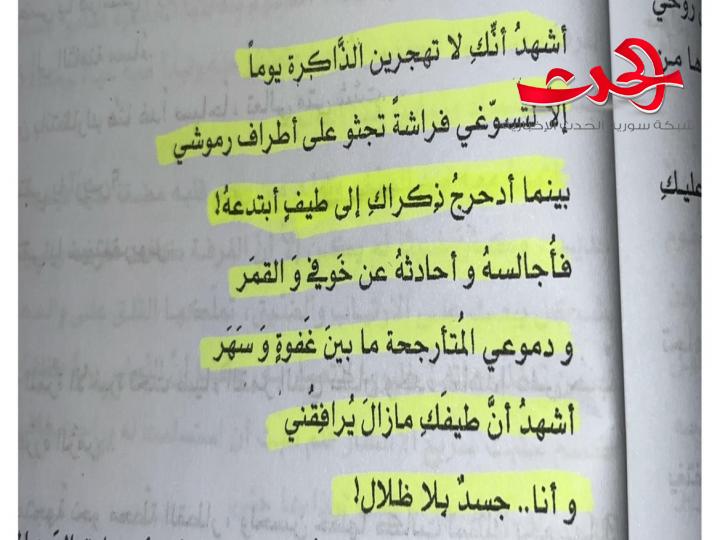 أشهدُ أنَّكِ لا تهجرين الذَّاكرة يوماً
إلّا لتسوّغي فراشةً تجثو على أطراف رموشي
بينما أدحرجُ ذِكراكِ إلى طيفٍ أبتدعهُ!
فأُجالسهُ و أحادثهُ عن خَوفي وَ القمَر
و دموعي المُتأرجحة ما بينَ غَفوةٍ وَ سَهَر
أشهدُ أنَّ طيفَكِ مازالَ يُرافِقُني
و أنا.. جسدٌ بِلا ظلال!
روحي
ها من
عليكِ
الحدث
شبكة سورية الحدث الإخبارية